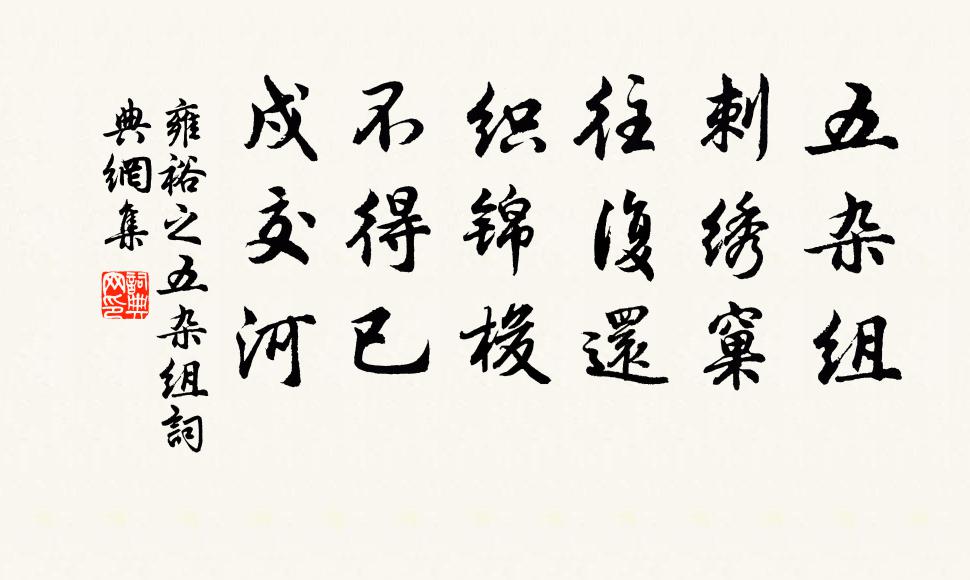 五杂组
刺绣窠
往復還
织锦梭
不得已
戍交河
雍裕之五杂组詞
典網集
詞典网印